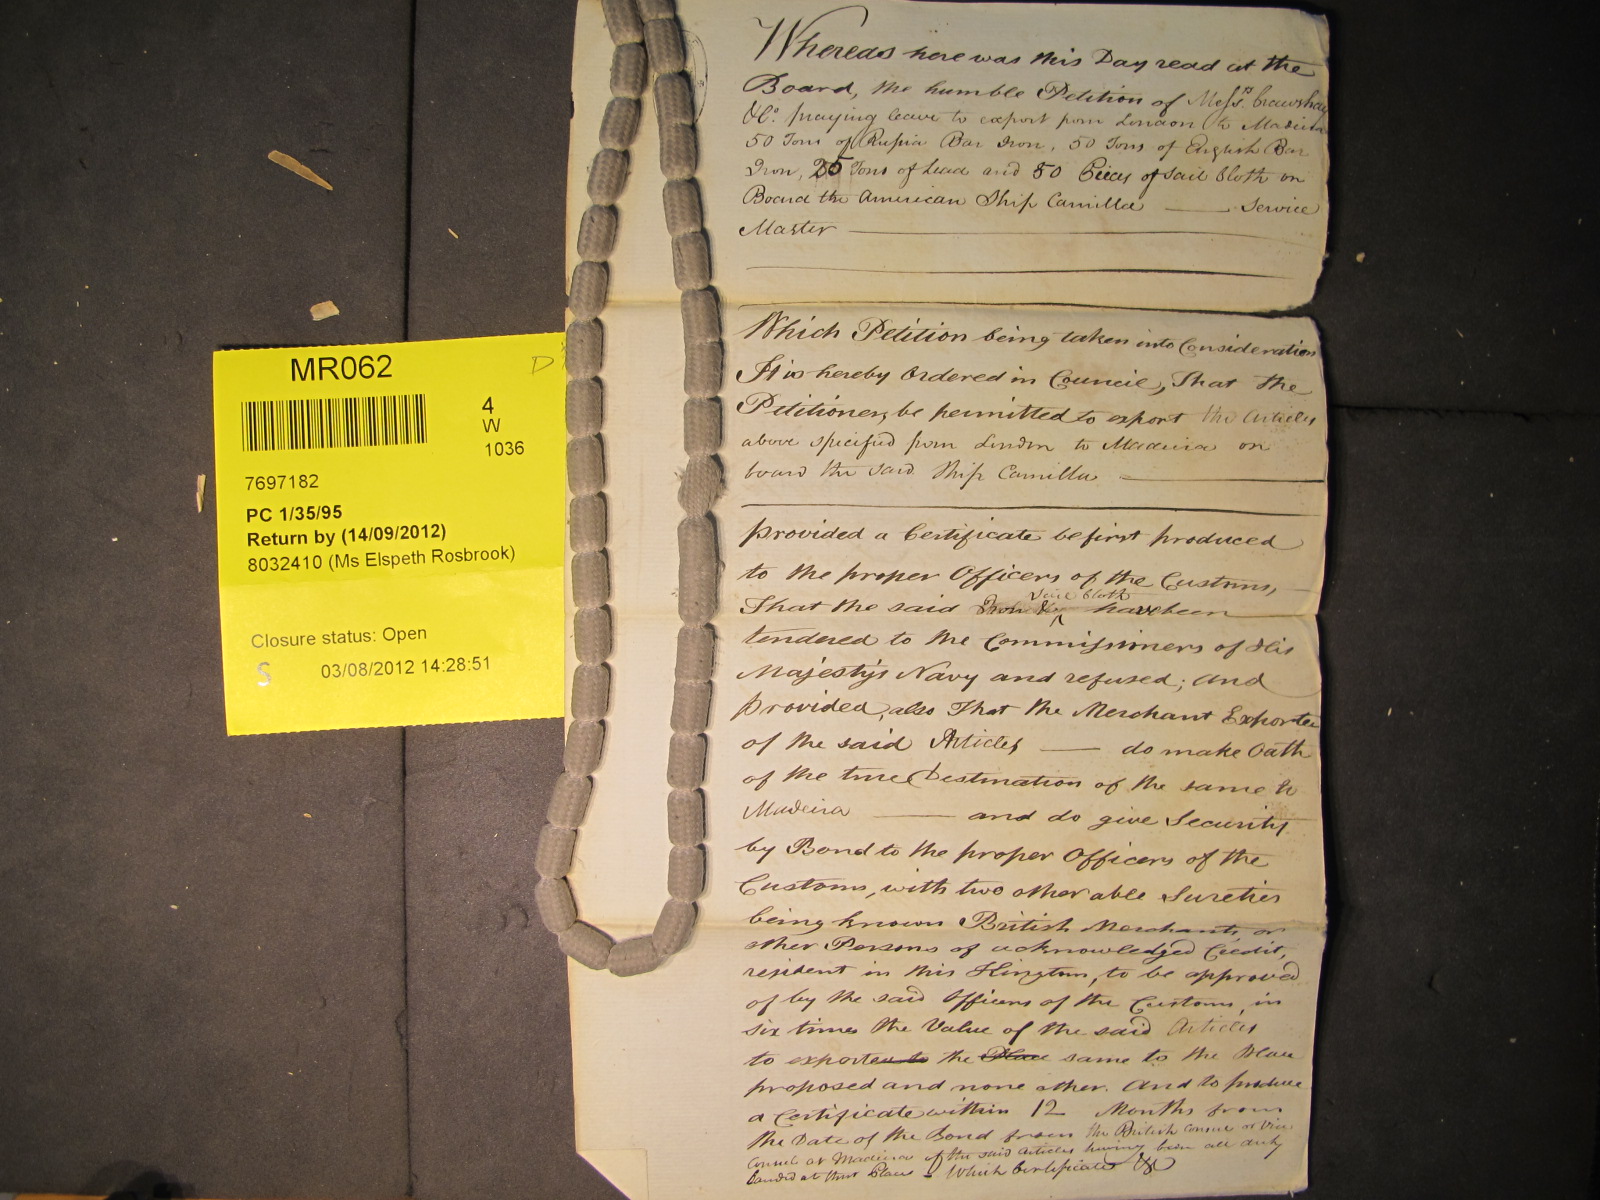 MR062
D
4
W
1036
7697182
PC 1/35/95
Return by (14/09/2012)
8032410 (Ms Elspeth Rosbrook)
Closure status: Open
S 03/08/2012 14:28:51
Whereas here was this Day read at the
Board, the humble Petition of Mess.rs Crawshay
& Co. praying leave to export from London to Madeira
50 Tons of Russia Bar Iron, 50 Tons of English Bar
Iron, 25 Tons of Lead and 80 Pieces of Sail Cloth on
Board the American Ship Camilla — Service
Master —
Which Petition being taken into Consideration
It is hereby Ordered in Council, That the
Petitioners, be permitted to export the Articles
above specified from London to Madeira on
board the said Ship Camilla —
provided a Certificate be first produced
to the proper Officers of the Customs,
Sail Cloth
That the said Iron & have been
tendered to the Commissioners of His
Majesty's Navy and refused; and
provided, also That the Merchant Exporter
of the said Articles — do make Oath
of the true Destination of the same to
Madeira — and do give Security
by Bond to the proper Officers of the
Customs, with two other able Sureties
being known British Merchants or
other Persons of acknowledged Credit,
resident in this Kingdom, to be approved
of by the said Officers of the Customs, in
six times the Value of the said Articles
to export the same to the Place
proposed and none other. And to produce
a Certificate within 12 Months from
the Date of the Bond from the British Consul or Vice
Consul at Madeira of the said Articles having been all duly
landed at that Place – Which Certificate &c